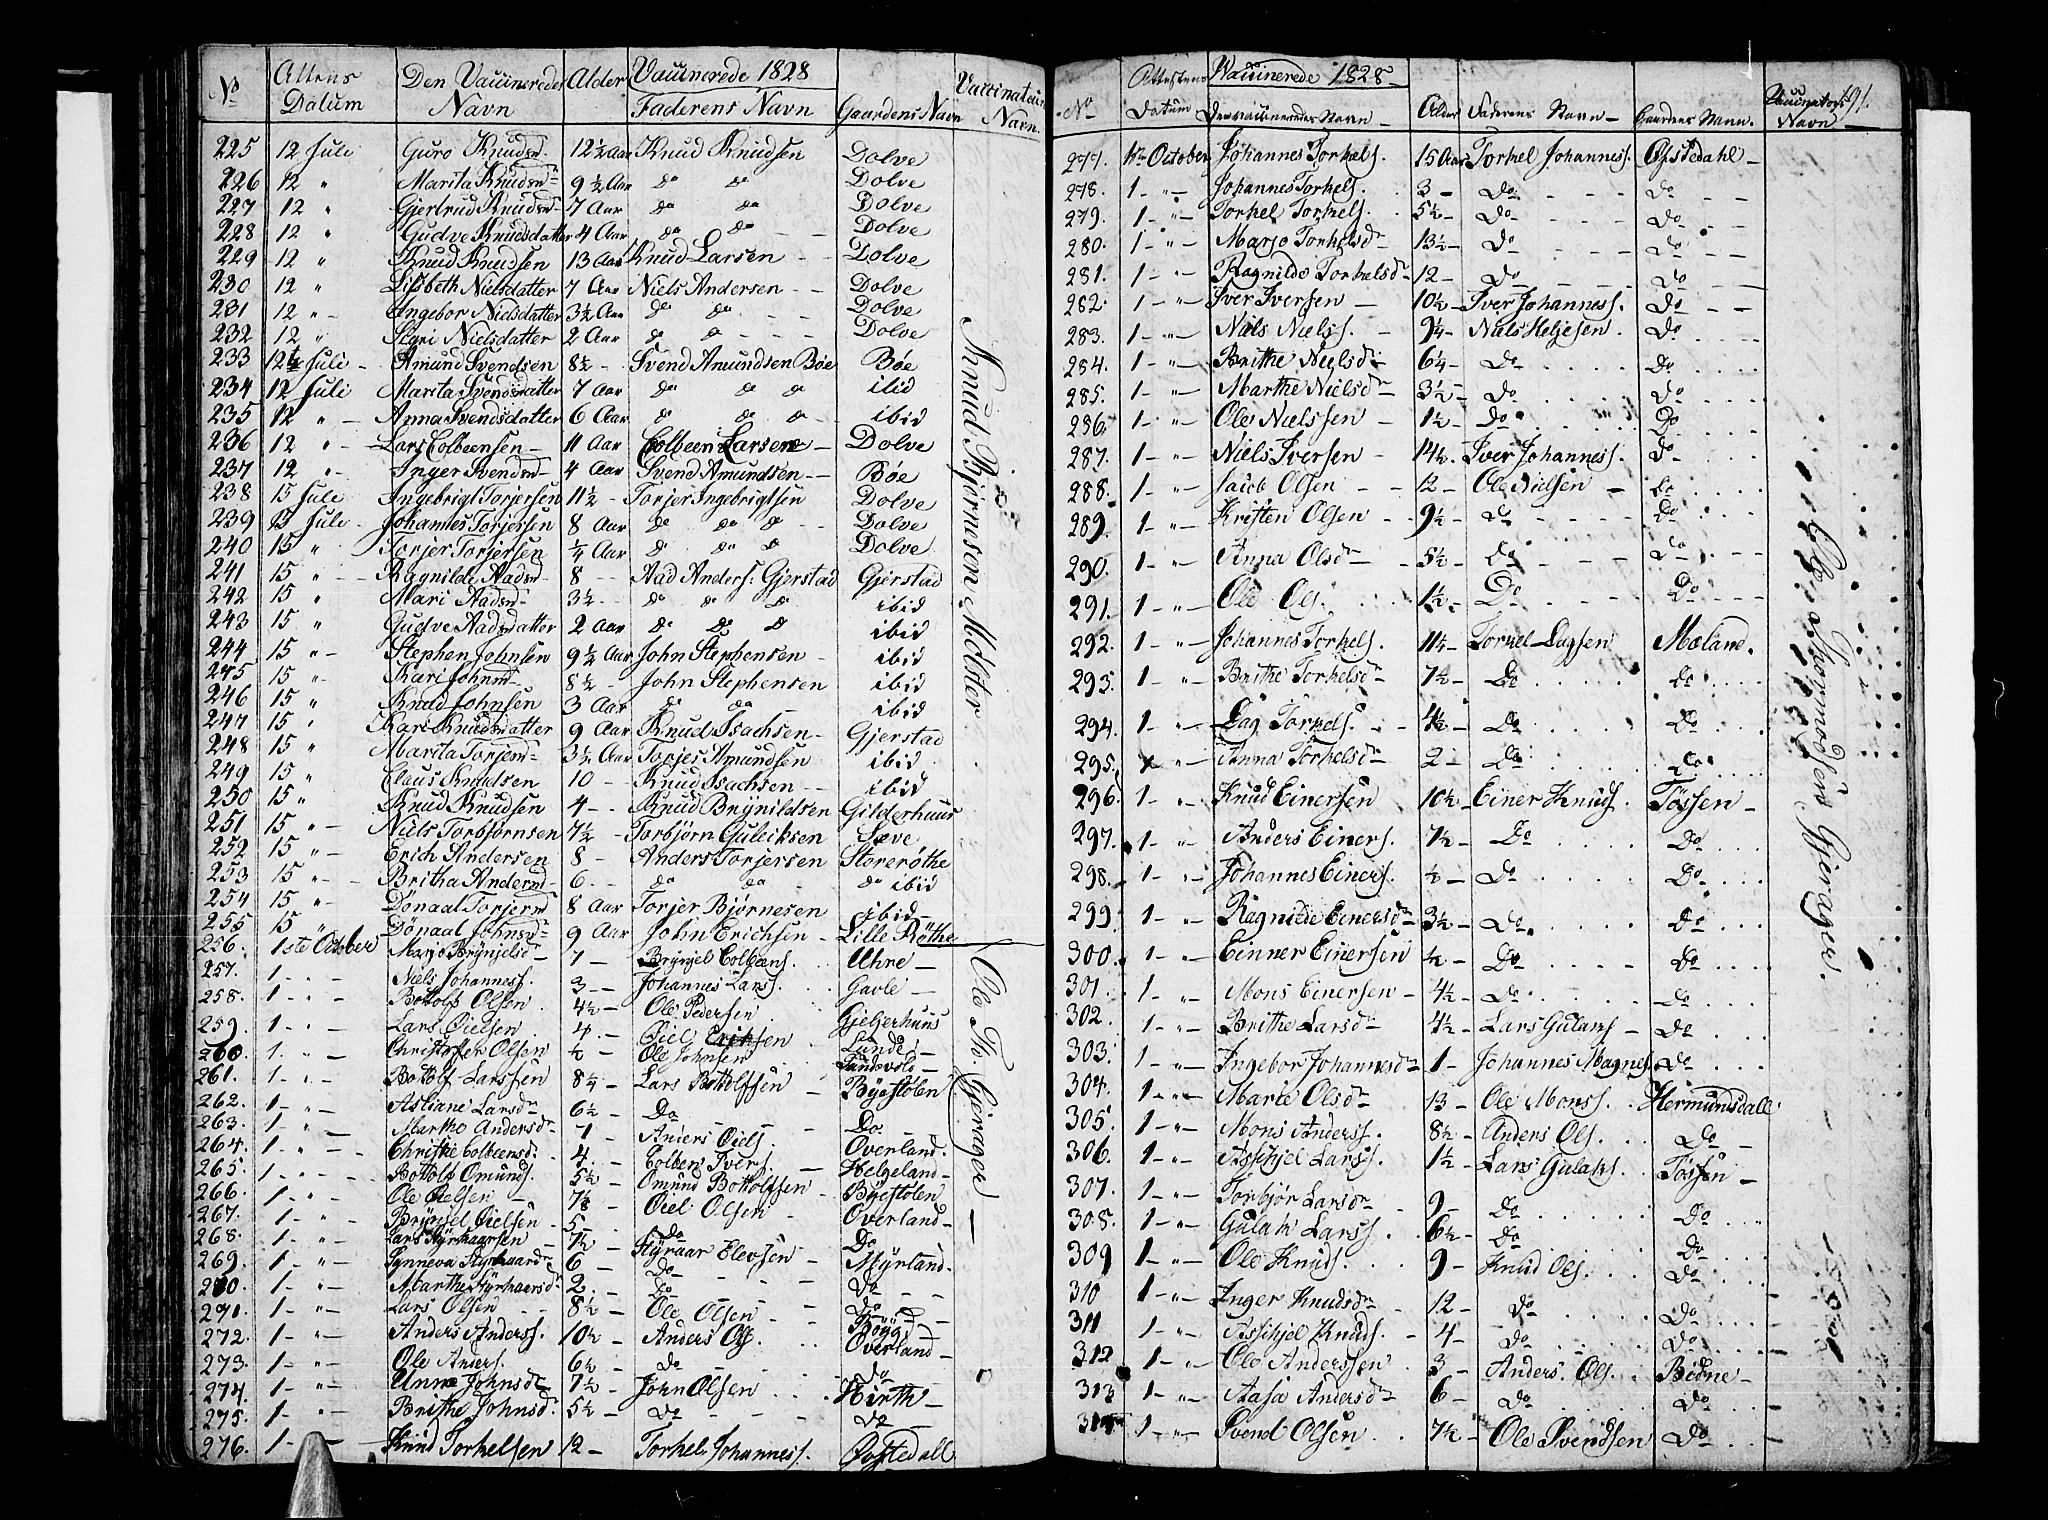 No Attens Datum Den Vaccineredes Navn Alder Vaccinerede 1828 Faderens Navn Gaardens Navn Vaccinateurs Navn
225 12 Juli Guro Knudsd. 12½ Aar Knud Knudsen Dolve
226 12 " Marita Knudsd. 9½ Aar do do Dolve
227 12 " Gjertrud Knudsd. 7 Aar do do Dolve
228 12 " Gudve Knudsdatter 4 Aar do do Dolve
229 12 " Knud Knudsen 13 Aar Knud Larsen Dolve
230 12 " Lisbeth Nielsdatter 7 Aar Niels Andersen Dolve
231 12 " Ingebor Nielsdatter 3½ Aar do do Dolve
232 12 " Siri Nielsdatter 2 Aar do do Dolve
233 12te Juli Amund Svendsen 8½ Svend Amundsen Bøe Bøe
234 12 Juli Marita Svendsdatter 7 Aar do do do ibid
235 12 " Anna Svendsdatter 6 Aar do do do ibid
236 12 " Lars Colbeensen 11 Aar Colbeen Larsen Dolve
237 12 " Inger Svendsd 4 Aar Svend Amundsen Bøe
238 15 Juli Ingebrigt Torjersen 11½ Torjer Ingebrigtsen Dolve
239 15 Juli Johannes Torjersen 8 Aar do do do Dolve
240 15 " Torjer Torjersen ¼ Aar do do do Dolve
241 15 " Ragnilde Aadsd 8 Aad Anders: Gjerstad Gjerstad
242 15 " Mari Aadsd 3½ do do do ibid
243 15 " Gudve Aadsdatter 2 Aar do do do ibid
244 15 " Stephen Johnsen 9½ Aar John Stephensen ibid
245 15 " Kari Johnsd 8½ John Stephensen ibid
246 15 " Knud Johnsen 3 Aar do do ibid
247 15 " Kari Knudsdatter 9 Aar Knud Isachsen Gjerstad
248 15 " Marita Torjersd 3½ Aar Torjes Amundsen ibid
249 15 " Claus Knudsen 10 Knud Isachsen ibid
250 15 " Knud Knudsen 4 Knud Brynildsen Gilderhuus
251 15 " Niels Torbjørnsen 7½ Torbjørn Gulleiksen Sæve
252 15 " Erich Andersen 8 Anders Torjersen Storerøthe
253 15 " Britha Andersd 6 do do do ibid
254 15 " Dönaal Torjersd 8 Aar Torjer Bjørnesen ibid
255 15 " Dönaal Johnsd 9 Aar John Erichsen Lille Røthe
256. 1ste October Marjo Brynjelsdr 7 Brynjel Colbeens. Uhre
257. 1 " Niels Johanness. 3 Johannes Larss. Gavle
258. 1 " Bottolf Olsen 4½ Ole Pedersen Gjeljerhuus
259. 1 " Lars Oielsen 4 Oiel Eriksen Lunde
260. 1 " Christoffer Olsen ½ Ole Johnsen Landsvold
261. 1 " Bottolf Larssen 8¼ Lars Bottolfsen Byestølen
262. 1 " Asliane Larsdr 6½ Do Do
263. 1 " Martho Andersdr 7 Anders Oiels. Overland.
264. 1 " Christie Colbeensd. 4 Colben Ivers. Helgeland
265. 1 " Bottolf Omunds. 5½ Omund Bottolfsen Byestølen
266. 1 " Ole Oielsen 7⅛ Oiel Olsen Overland
267. 1 " Brynjel Oielsen 5 do Do
268. 1 " Lars Styrkaarsen 7½ Styraar Elevsen Myrland
269. 1 " Synneva Styrkaardr 6 Do Do
270 1 " Marthe Styrkaarsd. 2 Do Do
271. 1 " Lars Olsen 8½ Ole Olsen Bøyg
272. 1 " Anders Anderss. 10½ Anders Ols. Overland
273. 1 " Ole Anders. 6½ do do
274. 1 " Unna Johnsdr 7½ John Olsen Hirth
275. 1 " Brithe Johnsd. 5½ do do
276. 1 Knud Torkelsen 12 Torkel Johanness. Øvstedall
Knud Bjørnesen Mølster
Ole Th. Gjerager
No Attestens Datum Vaccinerede 1828 Den vaccineredes Navn Alder Faderens Navn Gaardens Navn. Vaccinators Navn 191.
277. 1te October Johannes Torkels. 15 Aar Torkel Johanness. Øfstedahl
278. 1 " Johannes Torkels. 3 Do do
279. 1 " Torkel Torkels. 5½ Do do
280. 1 " Marjo Torkelsdr 13½ Do do
281. 1 " Ragnilde Torkelsdr 12 Do Do
282. 1 " Iver Iversen 10½ Iver Johanness. Do
283. 1 " Niels Nielss. 9¼ Niels Heljesen. Do
284. 1 " Brithe Nielsdr 6¼ Do Do
285. 1 " Marthe Nielsdr 3½ Do Do
286. 1 " Ole Nielssen 1½ Do Do
287. 1 " Niels Iversen 14½ Iver Johanness. Do
288. 1 " Jacob Olsen 12 Ole Nielsen Do
289. 1 " Kristen Olsen 9½ Do Do
290. 1 " Anna Olsdr 5½ Do Do
291. 1 " Ole Ols. 1½ Do Do
292. 1 " Johannes Torkels. 11½ Torkel Dagsen Mæland.
293. 1 " Brithe Torkelsdr 7½ Do Do
294. 1 " Dag Torkels. 4½ Do Do
295. 1 " Anna Torkelsdr 2 Do Do
296. 1 " Knud Einersen 10½ Einer Knuds. Tössen
297. 1 " Anders Einers. 7½ Do Do
298. 1 " Johannes Einers. ½ Do Do
299. 1 " Ragnilde Einersdr 3½ Do Do
300. 1 " Einner Einersen ¼ Do Do
301 1 " Mons Einersen 4½ Do Do
302. 1 " Brithe Larsdr 4½ Lars Gulaks. Do
303. 1 " Ingebor Johannesdr 1 Johannes Magnes. Do
304. 1 " Marte Olsdr 13 Ole Monss. Hermundsdall
305. 1 " Mons Anderss. 8½ Anders Ols. Do
306. 1 " Assihjel Larss. 1½ Lars Gulaks. Tössen
307. 1 " Torbjør Larsdr 9 Do Do
308. 1 " Gulak Larss. 6½ Do Do
309 1 " Ole Knuds. 9 Knud Ols. Do
310 1 " Inger Knudsdr 12 Do Do
311 1 " Assihjel Knuds. 4 Do Do
312 1 " Ole Anderssen 3 Anders Ols. Bidne
313 1 " Aasa Andersdr 6 Do Do
314 1 " Svend Olsen 7½ Ole Svendsen Do
Gjerager